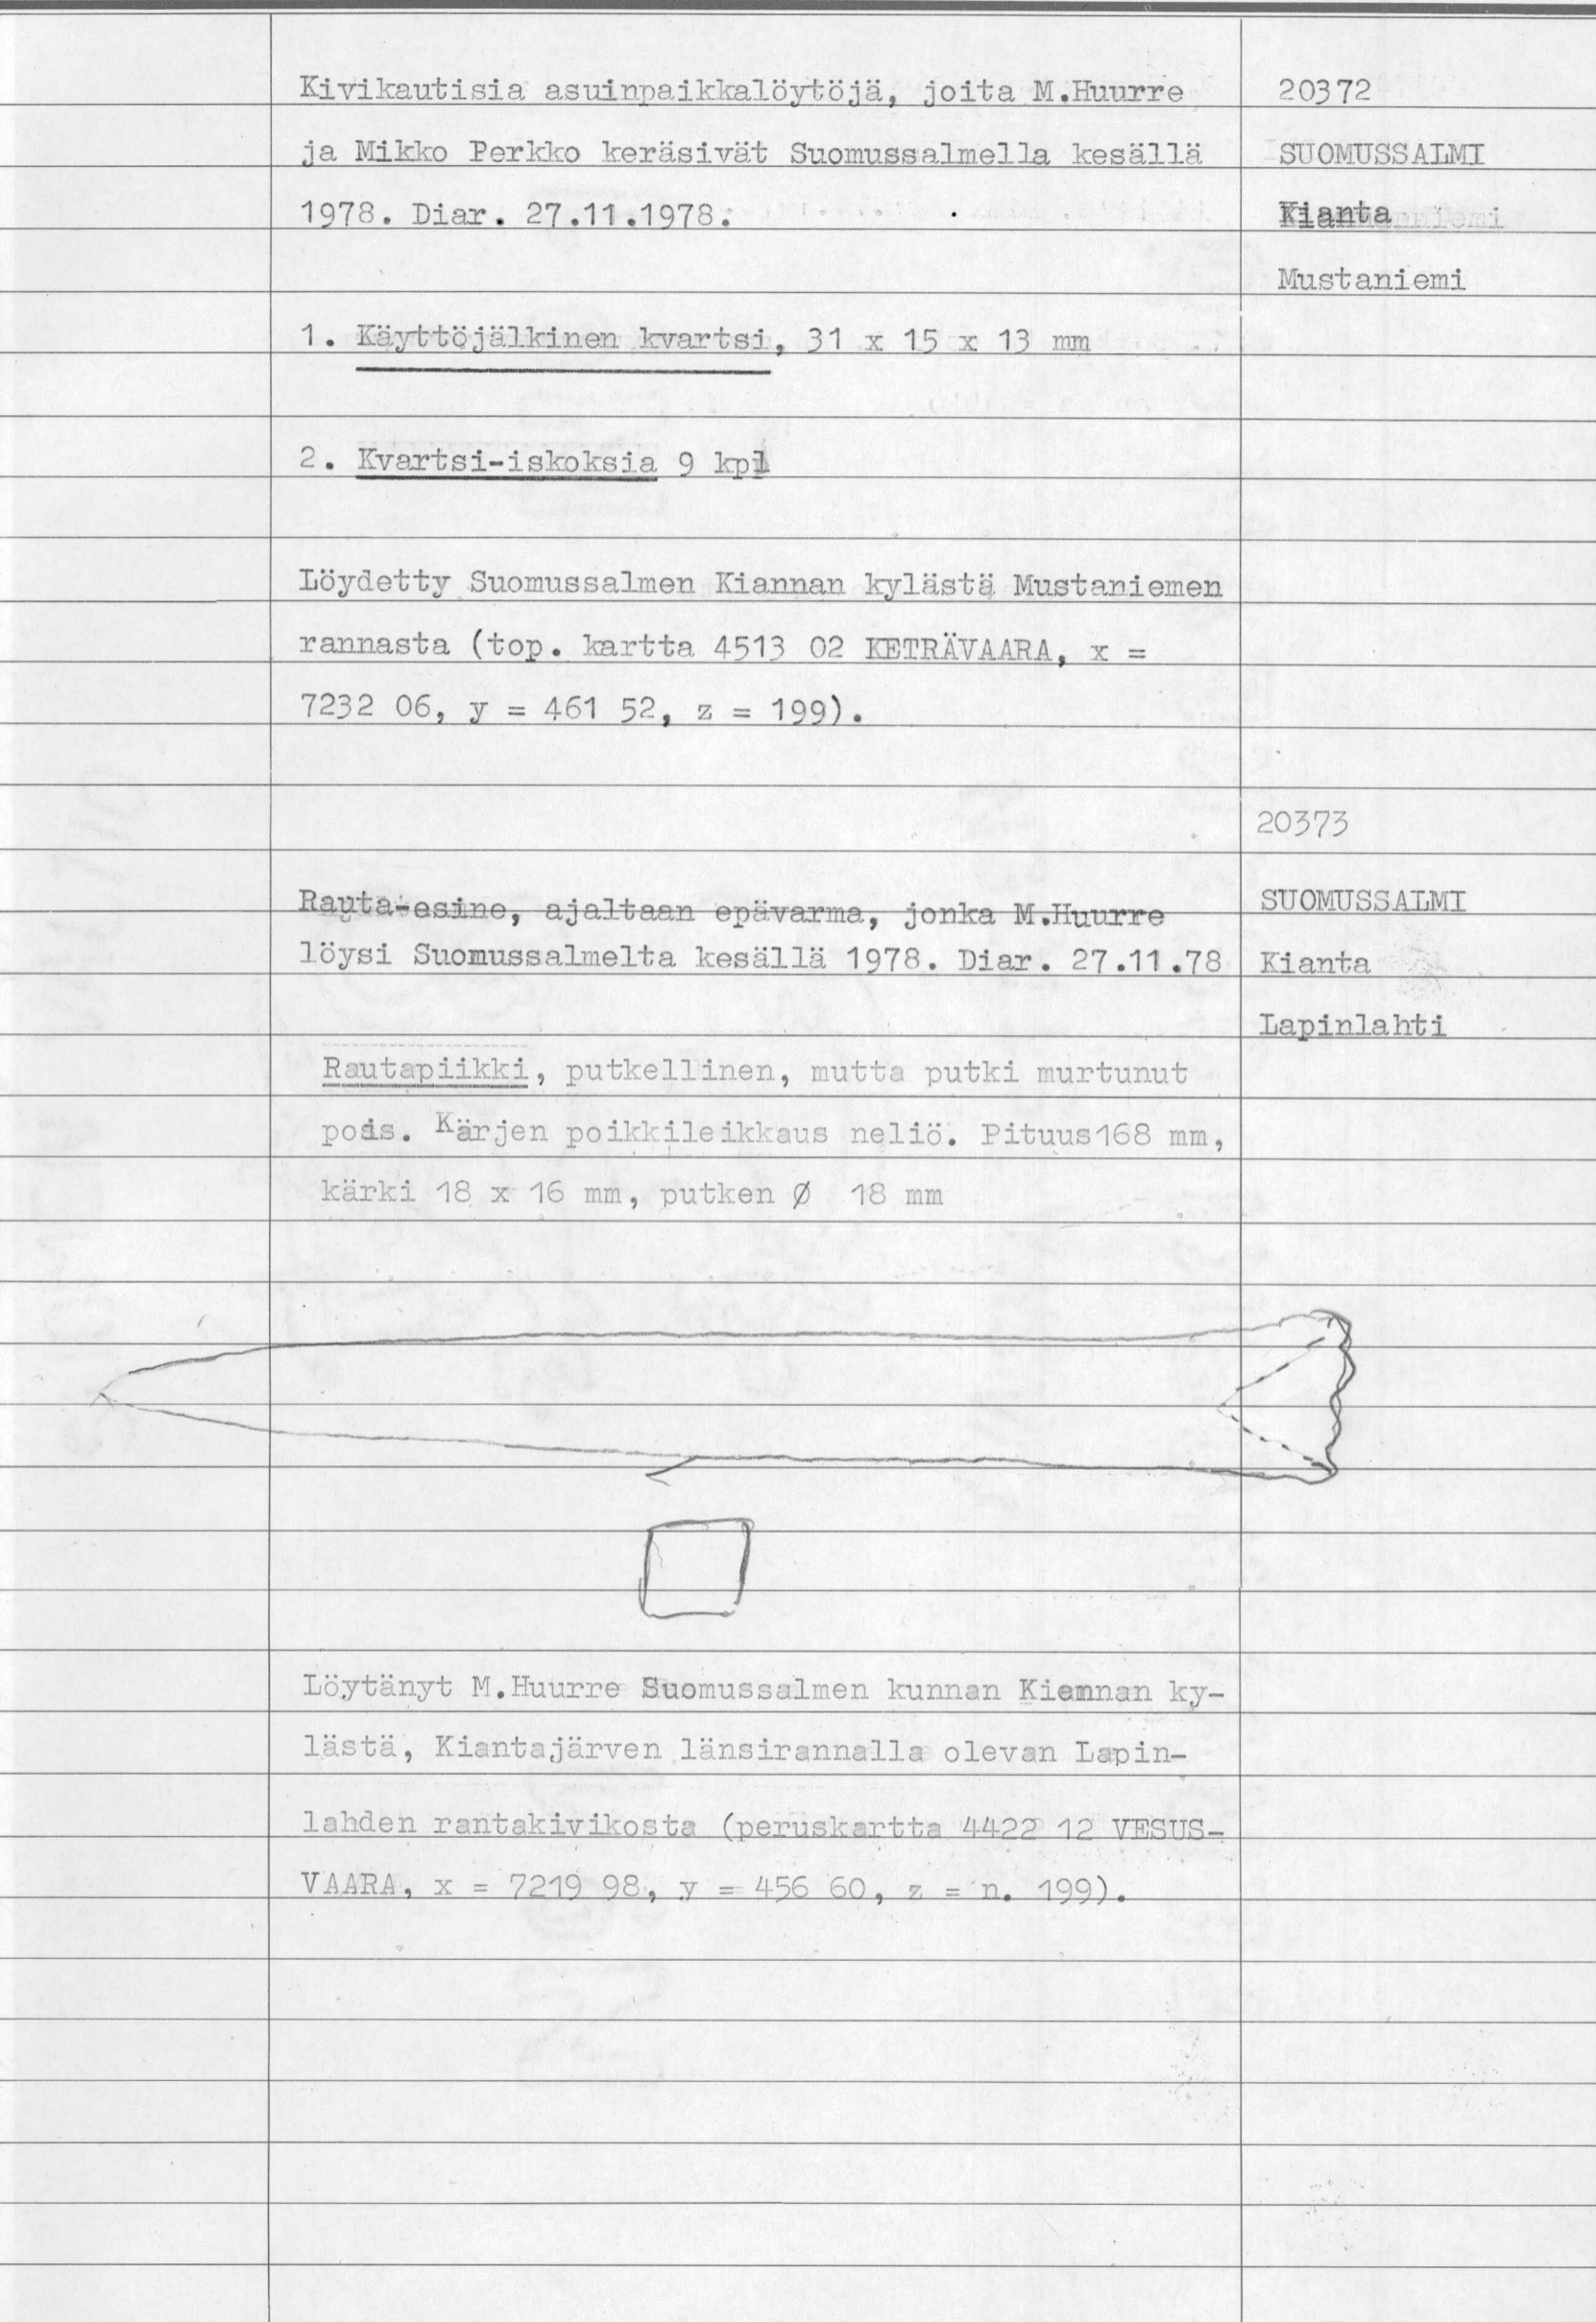 Kivikautisia asuinpaikkalöytöjä, joita M.Huurre
ja Mikko Perkko keräsivät Suomussalmella kesällä
1978. Diar. 27.11.1978.
20372
SUOMUSSALMI
Kianta
Mustaniemi
1. Käyttöjälkinen kvartsi, 31 x 15 x 13 mm
2. Kvartsi-iskoksia 9 kpl
Löydetty Suomussalmen Kiannan kylästä Mustaniemen
rannasta (top. kartta 4513 02 KETRÄVAARA, x =
7232 06, y = 461 52, z = 199).
20373
SUOMUSSALMI
Kianta
Lapinlahti
Rauta-esine, ajaltaan epävarma, jonka M.Huurre
löysi Suomussalmelta kesällä 1978. Diar. 27.11.78
Rautapiikki, putkellinen, mutta putki murtunut
pois. Kärjen poikkileikkaus neliö. Pituus168 mm,
kärki 18 x 16 mm, putken Ø 18 mm
Löytänyt M.Huurre Suomussalmen kunnan Kiannan ky-
lästä, Kiantajärven länsirannalla olevan Lapin-
lahden rantakivikosta (peruskartta 4422 12 VESUS-
VAARA, x = 7219 98, y = 456 60, z = n. 199).